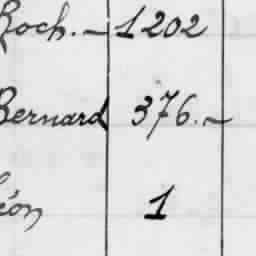 Roch. — 1202
Bernard 376. —
éon 1